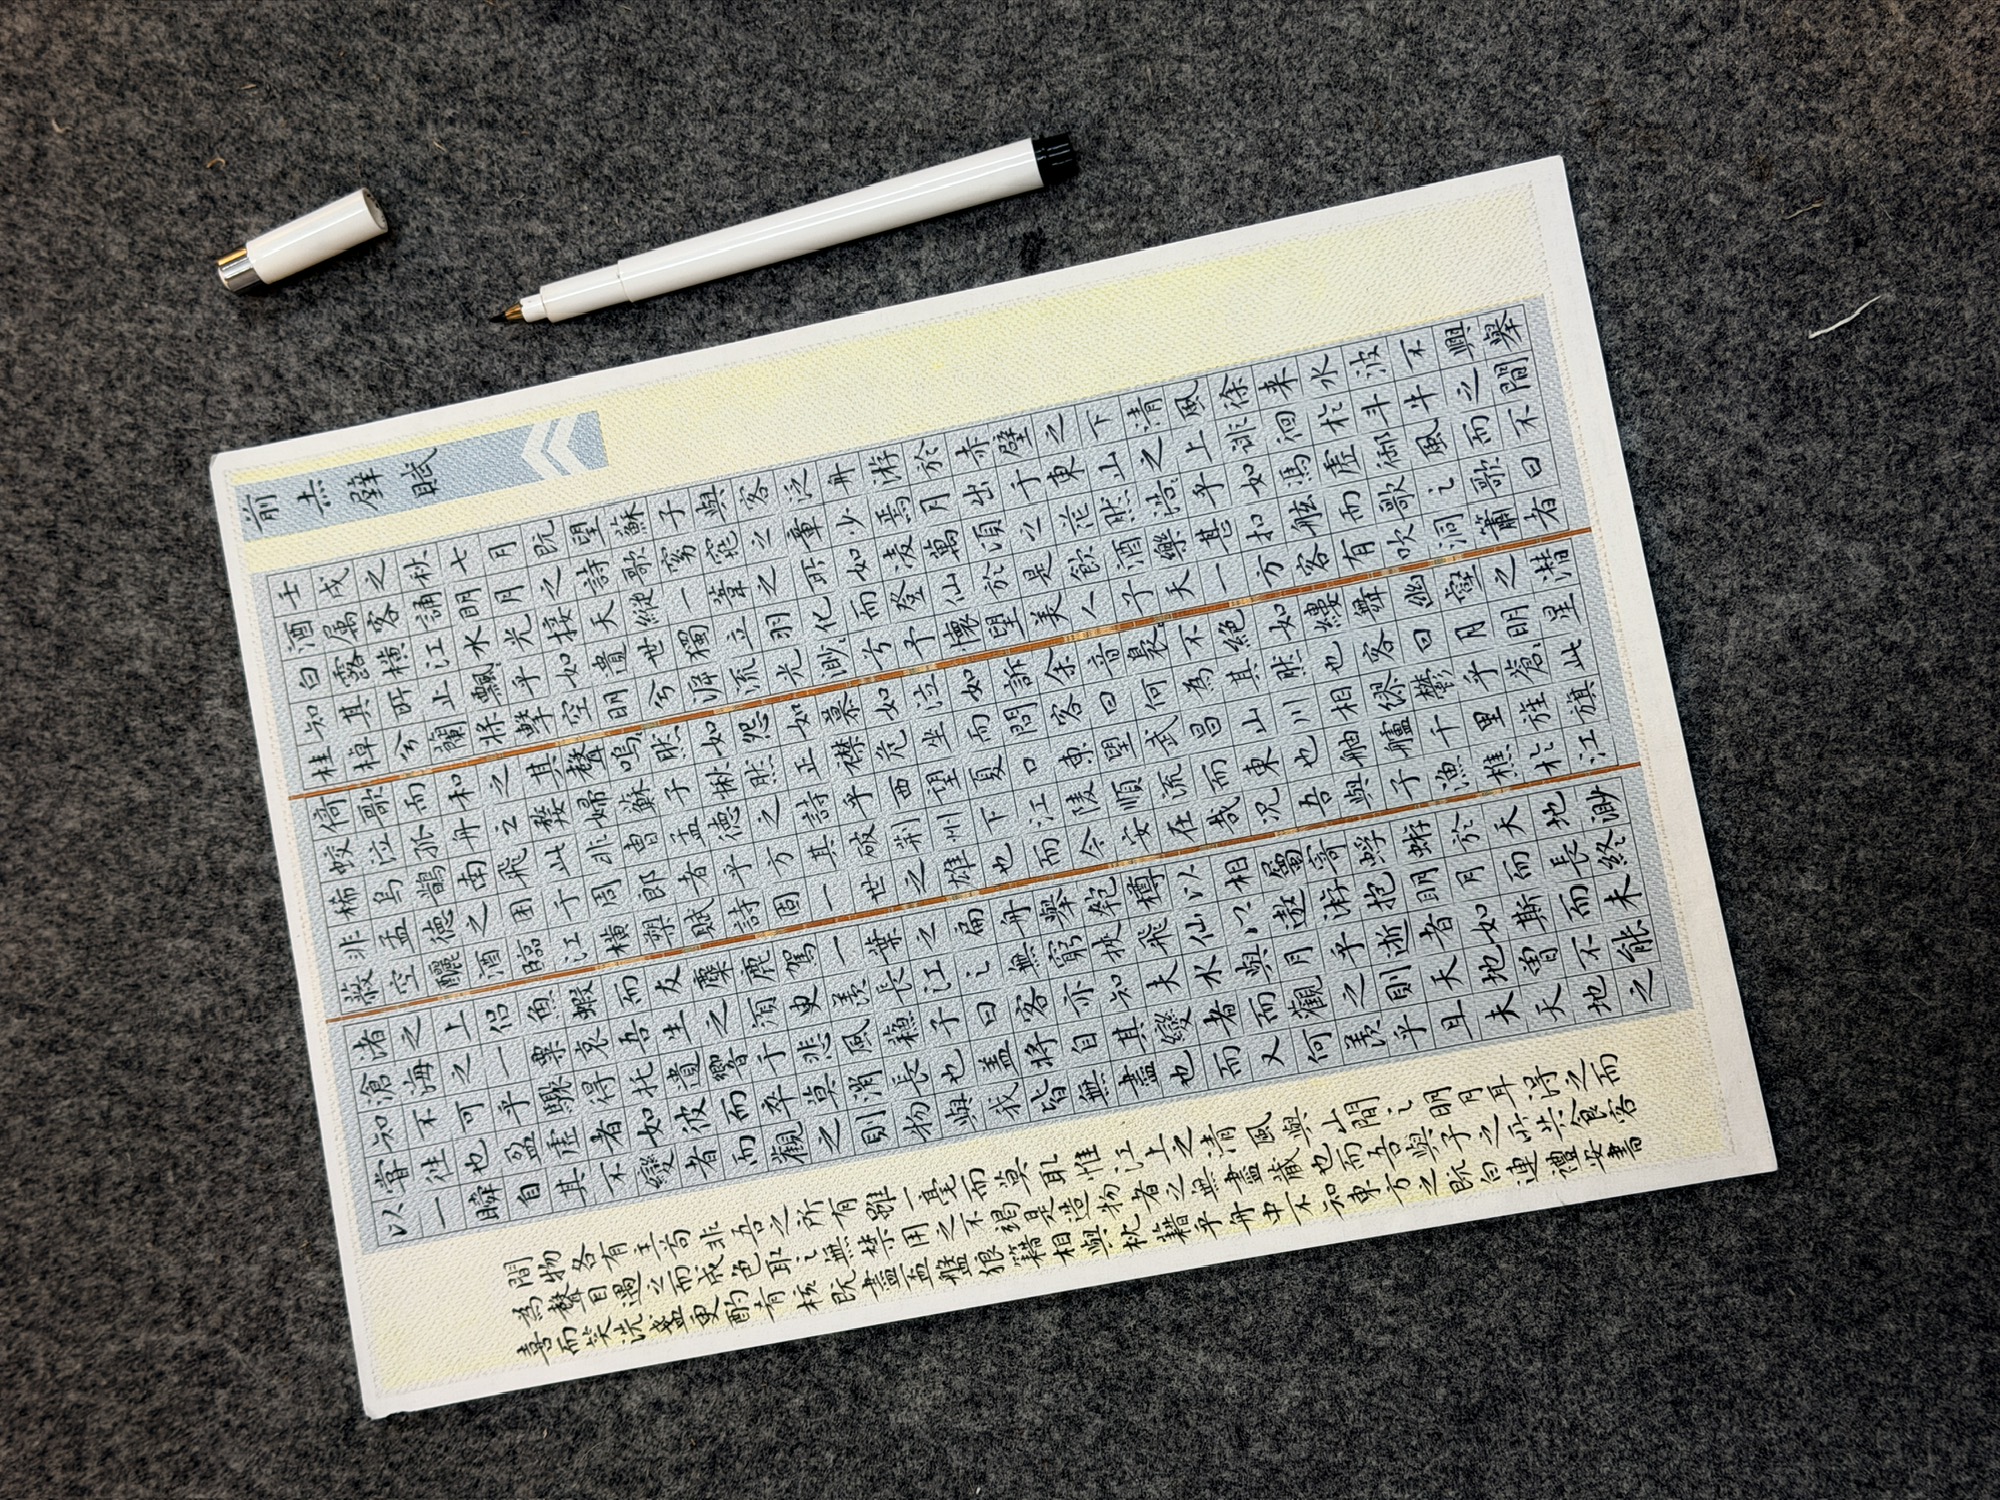 前赤壁賦
壬戌之秋七月既望蘇子與客泛舟游於赤壁之下清風徐来水波不興舉
酒属客誦明月之詩歌窈窕之章少焉月出于東山之上徘徊於斗牛之間
白露橫江水光接天縱一葦之所如凌萬頃之茫然浩乎如馮虛御風而不
知其所止飄乎如遺世獨立羽化而登仙於是飲酒樂甚扣舷而歌之歌曰
桂棹兮蘭將擊空明兮泝流光眇兮予懷望美人子天一方客有吹洞簫者
倚歌而和之其聲嗚然如怨如慕如泣如訴余音裊不絕如縷舞幽壑之潜
蛟泣孤舟之嫠婦蘇子愀然正襟危坐而問客曰何為其然也客曰月明星
稀烏鵲南飛此非曹孟德之詩乎西望夏口東望武昌山川相繆鬱乎蒼此
非孟德之困于周郎者乎方其破荆州下江陵順流而東也舳艫千里旌旗
蔽空釃酒臨江橫槊賦詩固一世之雄也而今安在哉况吾與子漁樵於江
渚之上侶魚蝦而友麋鹿駕一葉之扁舟舉匏樽以相屬寄蜉蝣於天地渺
滄海之一粟哀吾生之須更羡長江之無窮挾飛仙以遨游抱明月而長終
知不可乎驟得托遺響于悲風蘇子曰客亦知夫水與月乎逝者如斯而未
嘗往也盈虛者如彼而卒莫消長也盖將自其變者而觀之則天地曾不能
以一瞬自其不變者而觀之則物與我皆無盡也而又何羡乎且夫天地之
間物各有主苟非吾之所有雖一毫而莫取惟江上之清風與山間之明月耳得之而
為聲目遇之而成色取之無禁用之不竭是造物者之無盡藏也而吾與子之所共食客
喜而笑洗盞更酌肴核既盡杯盤狼籍相與枕藉乎舟中不知東方之既白連禮安書